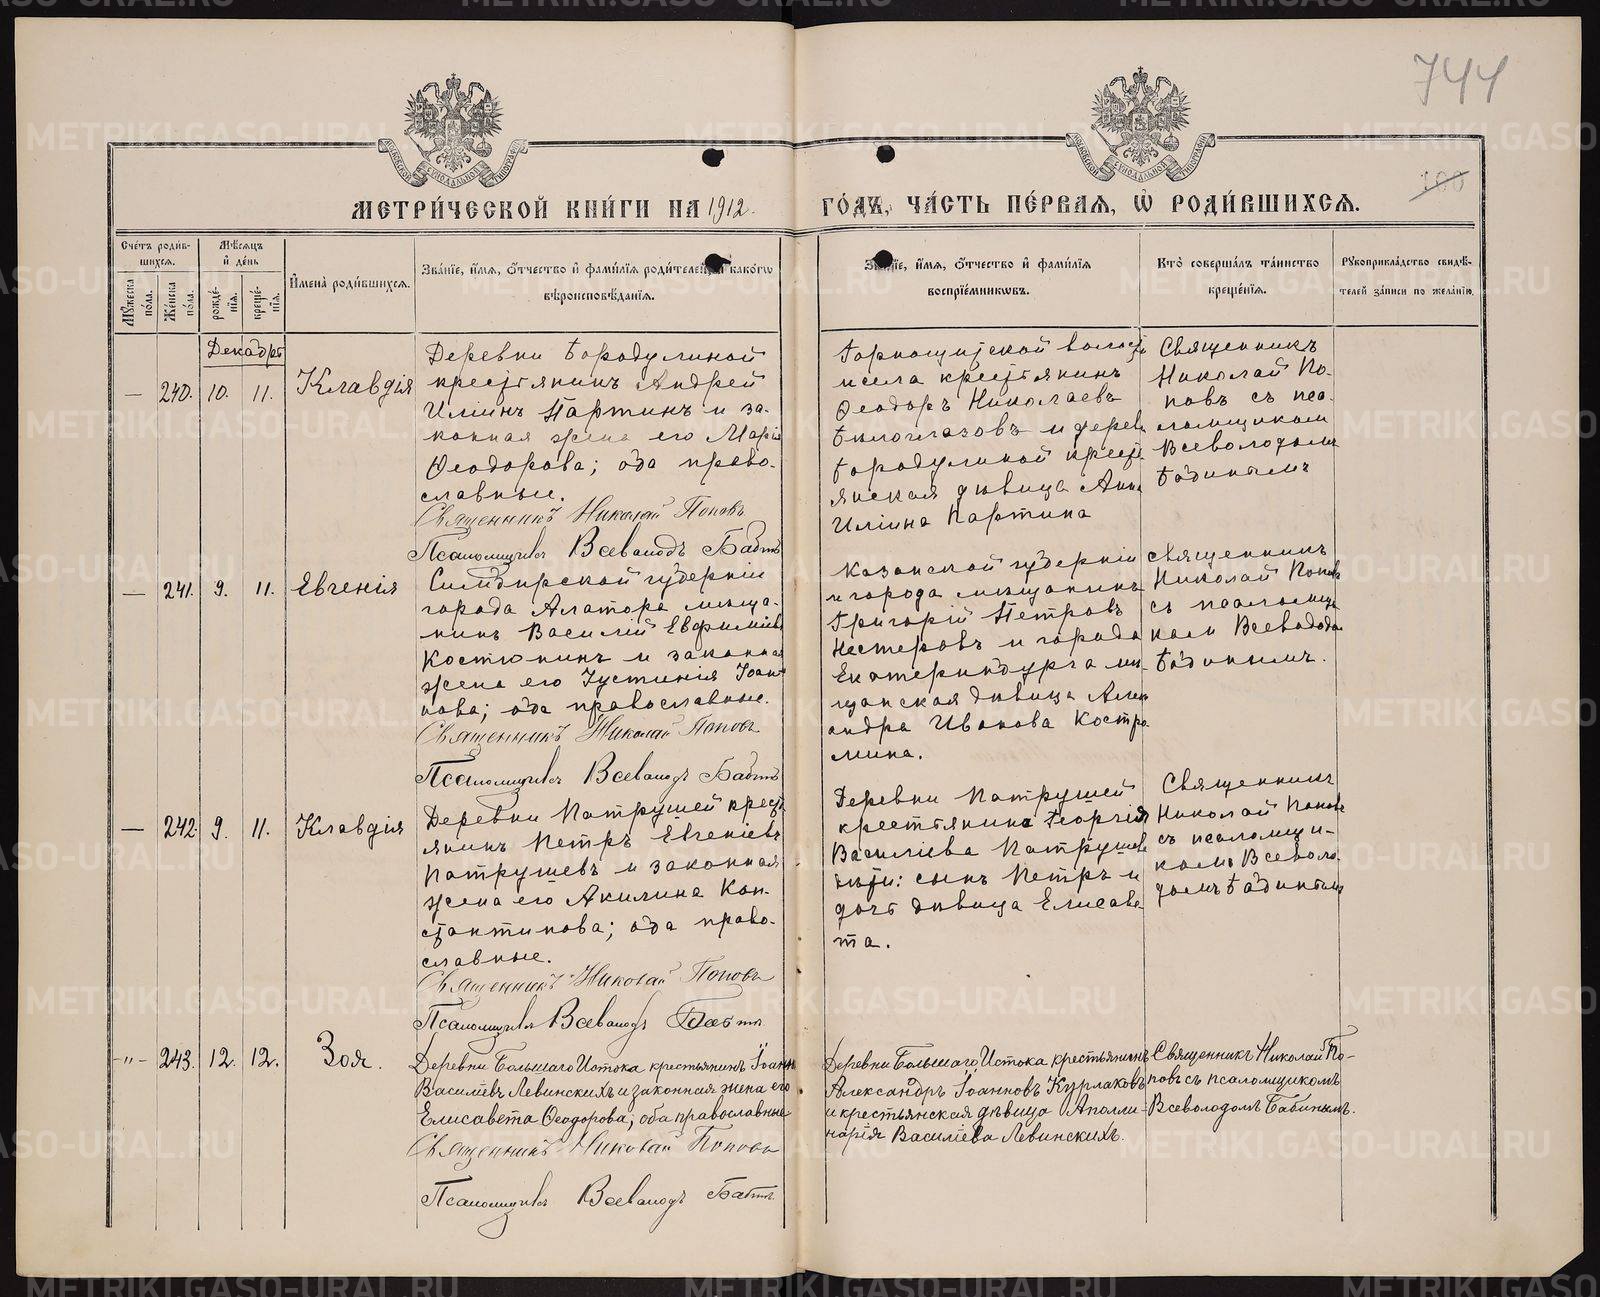 744
100
МЕТРИ́ЧЕСКОЙ КНИ́ГИ НА 1912. ГО́ДЪ, ЧА́СТЬ ПЕ́РВАѦ, Ѡ РОДИ́ВШИХСѦ.
Сче́тъ роди́в-
шихсѧ.
Мꙋжеска по́ла.
Же́нска по́ла.
Мѣ́сѧцъ
и҆ де́нь
рожде́-
нїѧ.
креще́-
нїѧ.
И҆мена̀ роди́вшихсѧ.
Зва́нїе, и҆́мѧ, ѻ҆́тчество и҆ фами́лїѧ роди́телей, и҆ како́гѡ
вѣроисповѣ́данїѧ.
Зва́нїе, и҆́мѧ, ѻ҆́тчество и҆ фами́лїѧ
воспрїе́мникѡвъ.
Кто̀ соверша́лъ та́инство
креще́нїѧ.
Рꙋкоприкла́дство свидѣ́-
телей за́писи по жела́нїю.
Декабрь
— 240. 10. 11. Клавдія
Деревни Бородулиной
крестьянинъ Андрей
Иліинъ Партинъ и за-
конная жена его Марія
Ѳеодорова; оба право-
славные.
Священникъ Николай Поповъ
Псаломщикъ Всеволодъ
Горнощитской волости
и села крестьянинъ
Ѳеодоръ Николаевъ
Бѣлоглазовъ и дерев.
Бородулиной крест-
янская дѣвица Анна
Иліина Партина
Священникъ
Николай По-
повъ съ пса-
ломщикомъ
Всеволодомъ
Бабинымъ
— 241. 9. 11. Евгенія
Симбирской губерніи
города Алатыря мѣща-
нинъ Василій Евфиміевъ
Костюнинъ и законная
жена его Іустинія Іоан-
нова; оба православные.
Священникъ Николай Поповъ
Псаломщикъ Всеволодъ
Казанской губерніи
и города мѣщанинъ
Григорій Петровъ
Нестеровъ и города
Екатеринбурга мѣ-
щанская дѣвица Алек-
андра Иванова Костро
мина.
Священникъ
Николай Поповъ
съ псаломщи
комъ Всеволодомъ
Бабинымъ.
— 242. 9. 11. Клавдія
Деревни Патрушей крест
янинъ Петръ Евгеніевъ
Патрушевъ и законная
жена его Акилина Кон-
стантинова; оба право-
славные.
Священникъ Николай Поповъ
Псаломщикъ Всеволодъ
Деревни Патрушей
крестьянина Георгія
Василіева Патрушева
дѣти: сынъ Петръ и
дочь дѣвица Елисаве
та.
Священникъ
Николай Поповъ
съ псаломщи-
комъ Всеволо-
домъ Бабинымъ
-"- 243. 12. 12. Зоя.
Деревни Большаго Истока крестьянинъ Іоаннъ
Василіевъ Левинскихъ и законная жена его
Елисавета Ѳеодорова; оба православные
Священникъ Николай Поповъ
Псаломщикъ Всеволодъ
Деревни Большаго Истока крестьянинъ
Александръ Іоанновъ Курлаковъ
и крестьянская дѣвица Аполли-
нарія Василіева Левинскихъ.
Священникъ Николай По-
повъ съ псаломщикомъ
Всеволодомъ Бабинымъ.